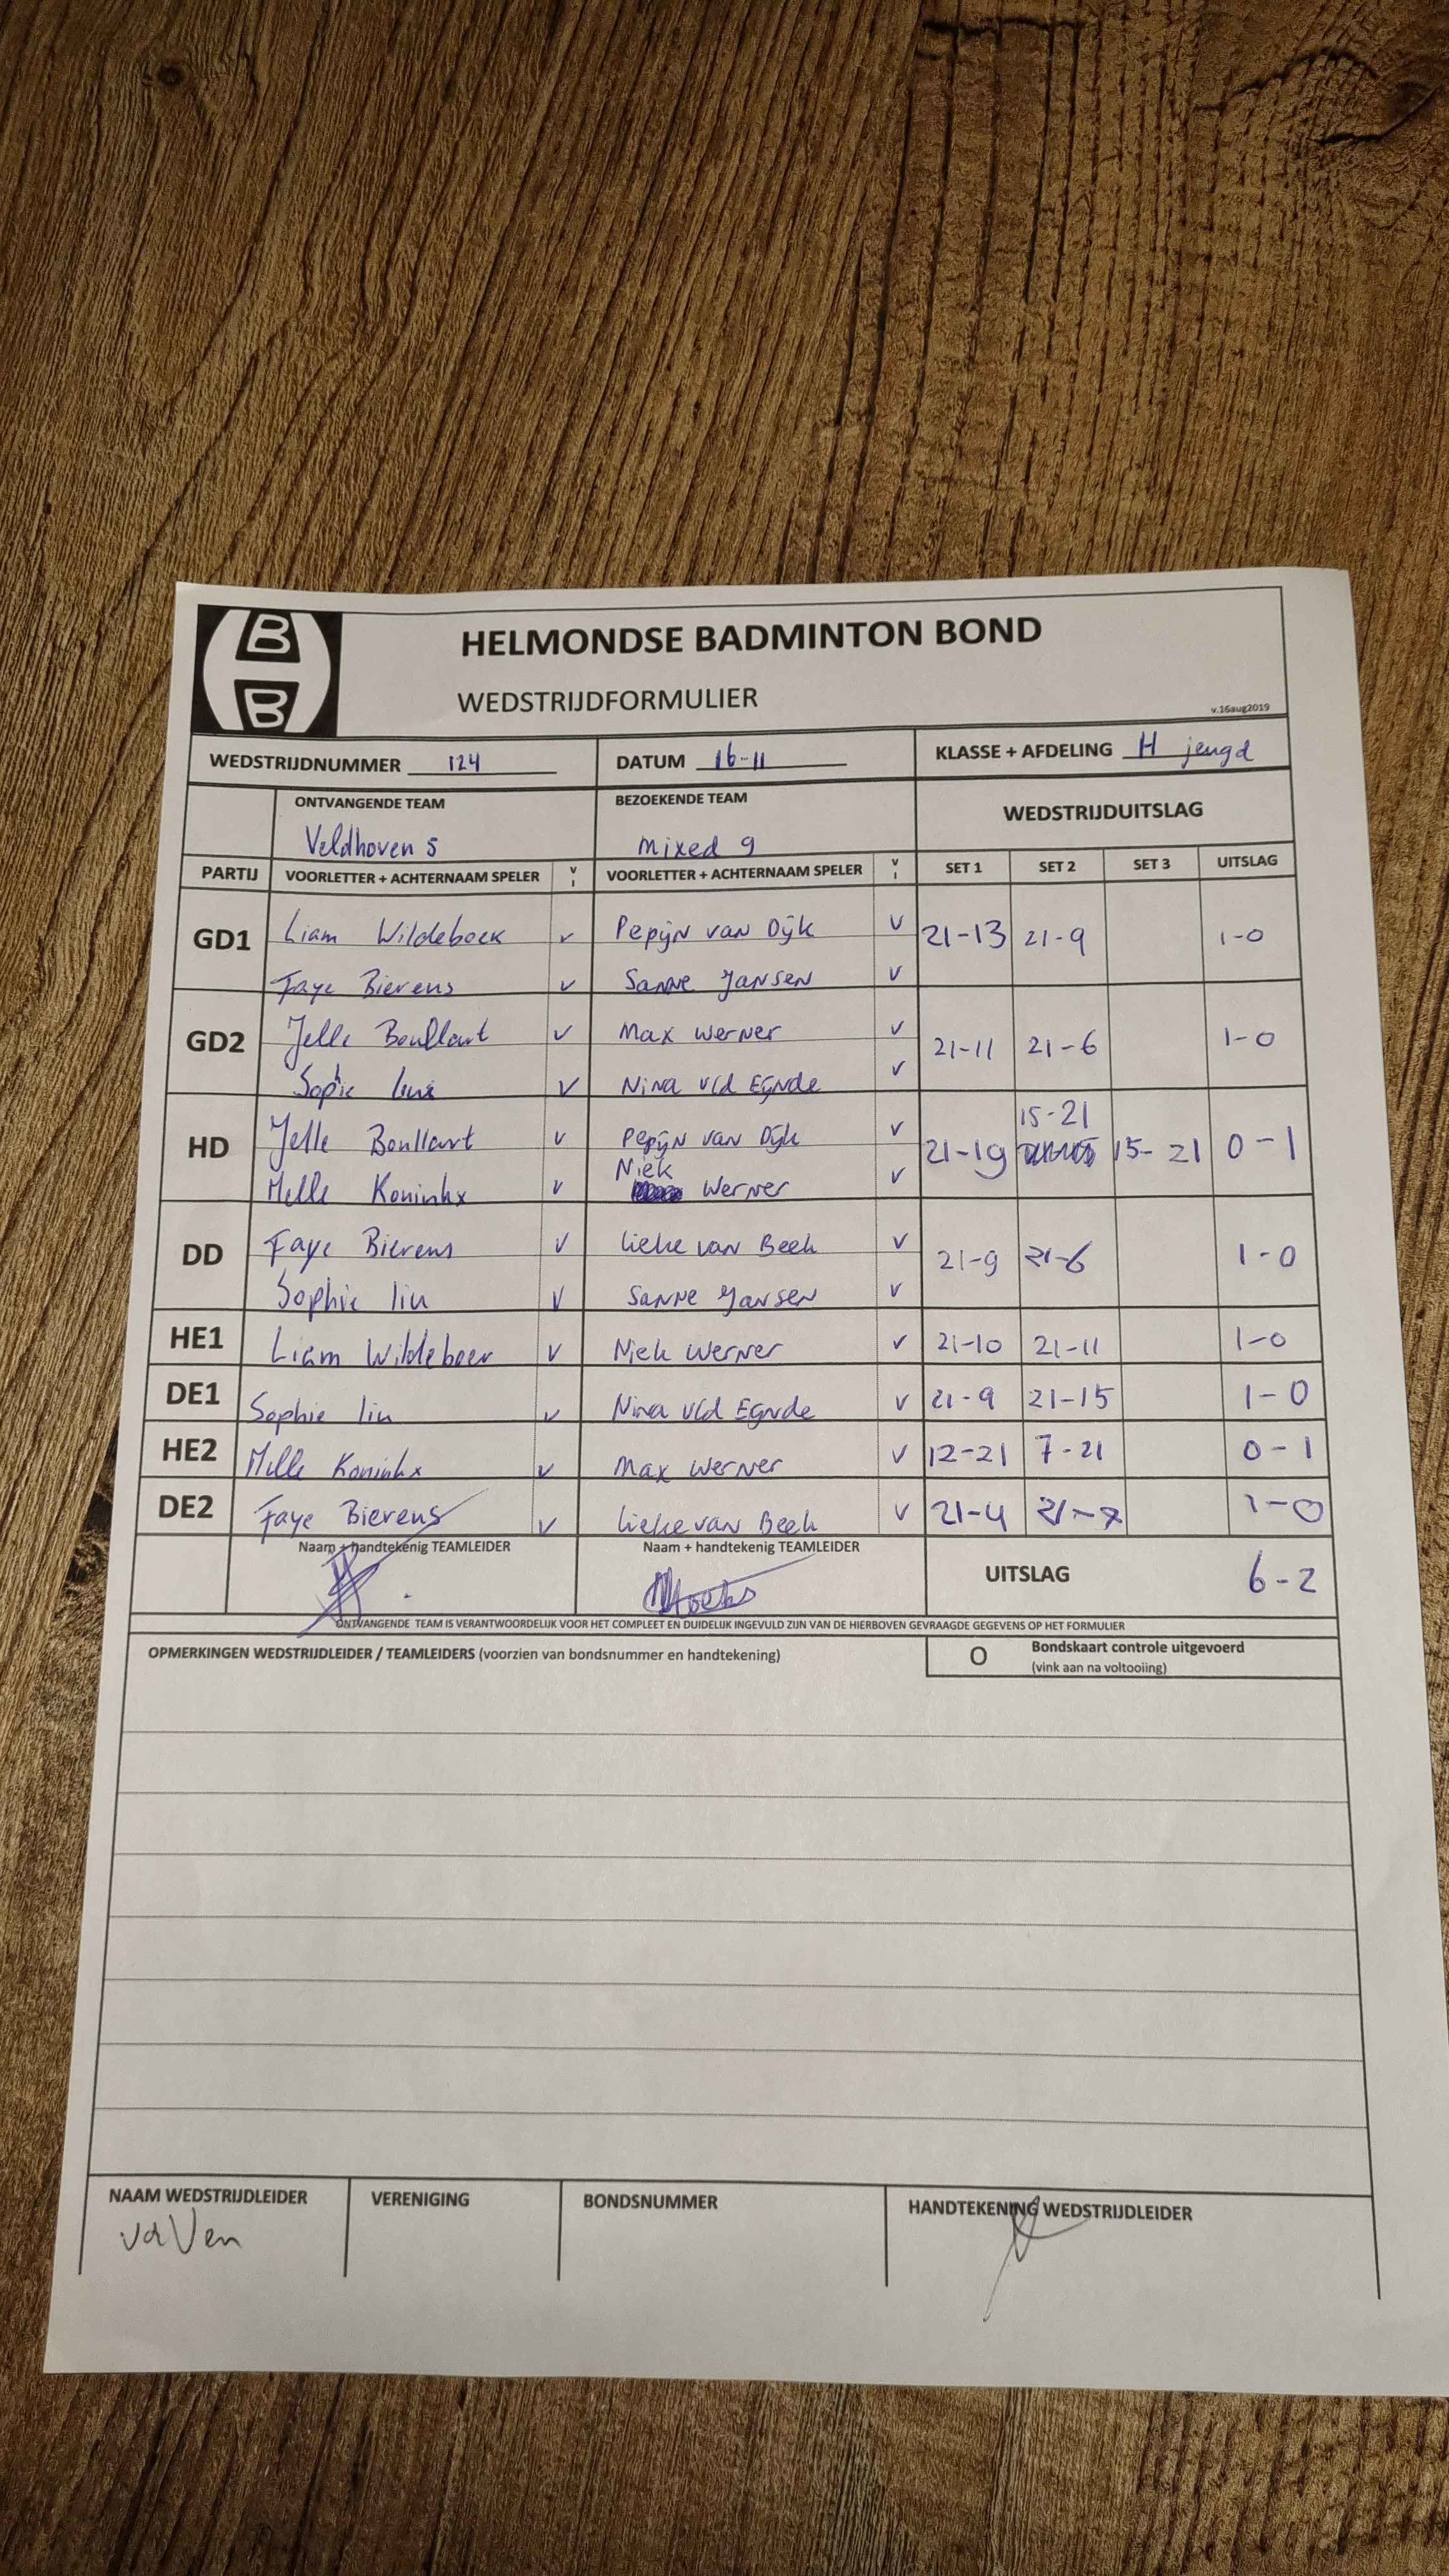 B
B
HELMONDSE BADMINTON BOND
WEDSTRIJDFORMULIER
v.16aug2019
WEDSTRIJDNUMMER 124 DATUM 16-11 KLASSE + AFDELING H jeugd
ONTVANGENDE TEAM BEZOEKENDE TEAM WEDSTRIJDUITSLAG
Veldhoven 5 Mixed 9
PARTIJ VOORLETTER + ACHTERNAAM SPELER V I VOORLETTER + ACHTERNAAM SPELER V I SET 1 SET 2 SET 3 UITSLAG
GD1 Liam Wildeboer v Pepijn van Dijk v 21-13 21-9 1-0
Faye Bierens v Sanne Jansen v
GD2 Jelle Boullart v Max Werner v 21-11 21-6 1-0
Sophie liu v Nina v/d Eijnde v
15-21
HD Jelle Boullart v Pepijn van Dijk v 21-19 15-21 0-1
Niek
Melle Koninkx v Werner v
DD Faye Bierens v Lieke van Beek v 21-9 21-6 1-0
Sophie liu v Sanne Jansen v
HE1 Liam Wildeboer v Niek Werner v 21-10 21-11 1-0
DE1 Sophie liu v Nina v/d Eijnde v 21-9 21-15 1-0
HE2 Melle Koninkx v Max Werner v 12-21 7-21 0-1
DE2 Faye Bierens v Lieke van Beek v 21-4 21-7 1-0
Naam + handtekenig TEAMLEIDER Naam + handtekenig TEAMLEIDER UITSLAG 6-2
ONTVANGENDE TEAM IS VERANTWOORDELIJK VOOR HET COMPLEET EN DUIDELIJK INGEVULD ZIJN VAN DE HIERBOVEN GEVRAAGDE GEGEVENS OP HET FORMULIER
OPMERKINGEN WEDSTRIJDLEIDER / TEAMLEIDERS (voorzien van bondsnummer en handtekening) O Bondskaart controle uitgevoerd
(vink aan na voltooiing)
NAAM WEDSTRIJDLEIDER VERENIGING BONDSNUMMER HANDTEKENING WEDSTRIJDLEIDER
vd Ven